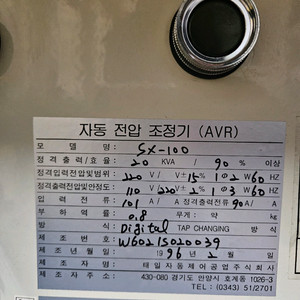 자동 전압 조정기 (AVR)
모델명 : SX-100
정격출력/효율 : 20 KVA / 90 % 이상
정격입력전압및범위 : 220 V/V±15% 1Φ2 W60 HZ
정격출력전압및안정도 : 110 220 V± 2 % 1Φ3 W60 HZ
입력전류 : 101 A/A 정격출력전류 90 A/A
부하역율 : 0.8 무게 : 약 kg
방식 : Digital TAP CHANGING 방식
제조번호 : W60215020039
제조년월일 : 1996년 2월 일
제조자명 : 태일자동제어공업주식회사
제조자주소 : 430-080 경기도 안양시 호계동 1026-3
TEL : (0343) 51/2701